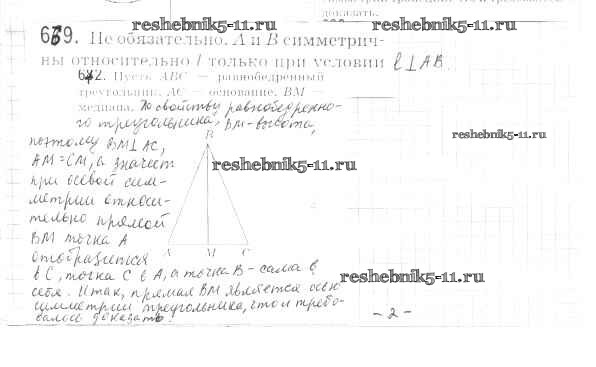 доказать.
reshebnik5-11.ru
reshebnik5-11.ru
669. Не обязательно. A и B симметрич-
ны относительно l только при условии l⊥AB.
672. Пусть ABC — равнобедренный
треугольник, AC — основание, BM —
медиана. По свойству равнобедренно-
го треугольника, BM-высота,
поэтому BM⊥AC,
AM=CM, а значит
при осевой сим-
метрии относи-
тельно прямой
BM точка A
отобразится
в C, точка C в A, а точка B - сама в
себя. Итак, прямая BM является осью
симметрии треугольника, что и требо-
валось доказать.
B
A M C
reshebnik5-11.ru
reshebnik5-11.ru
reshebnik5-11.ru
- 2 -